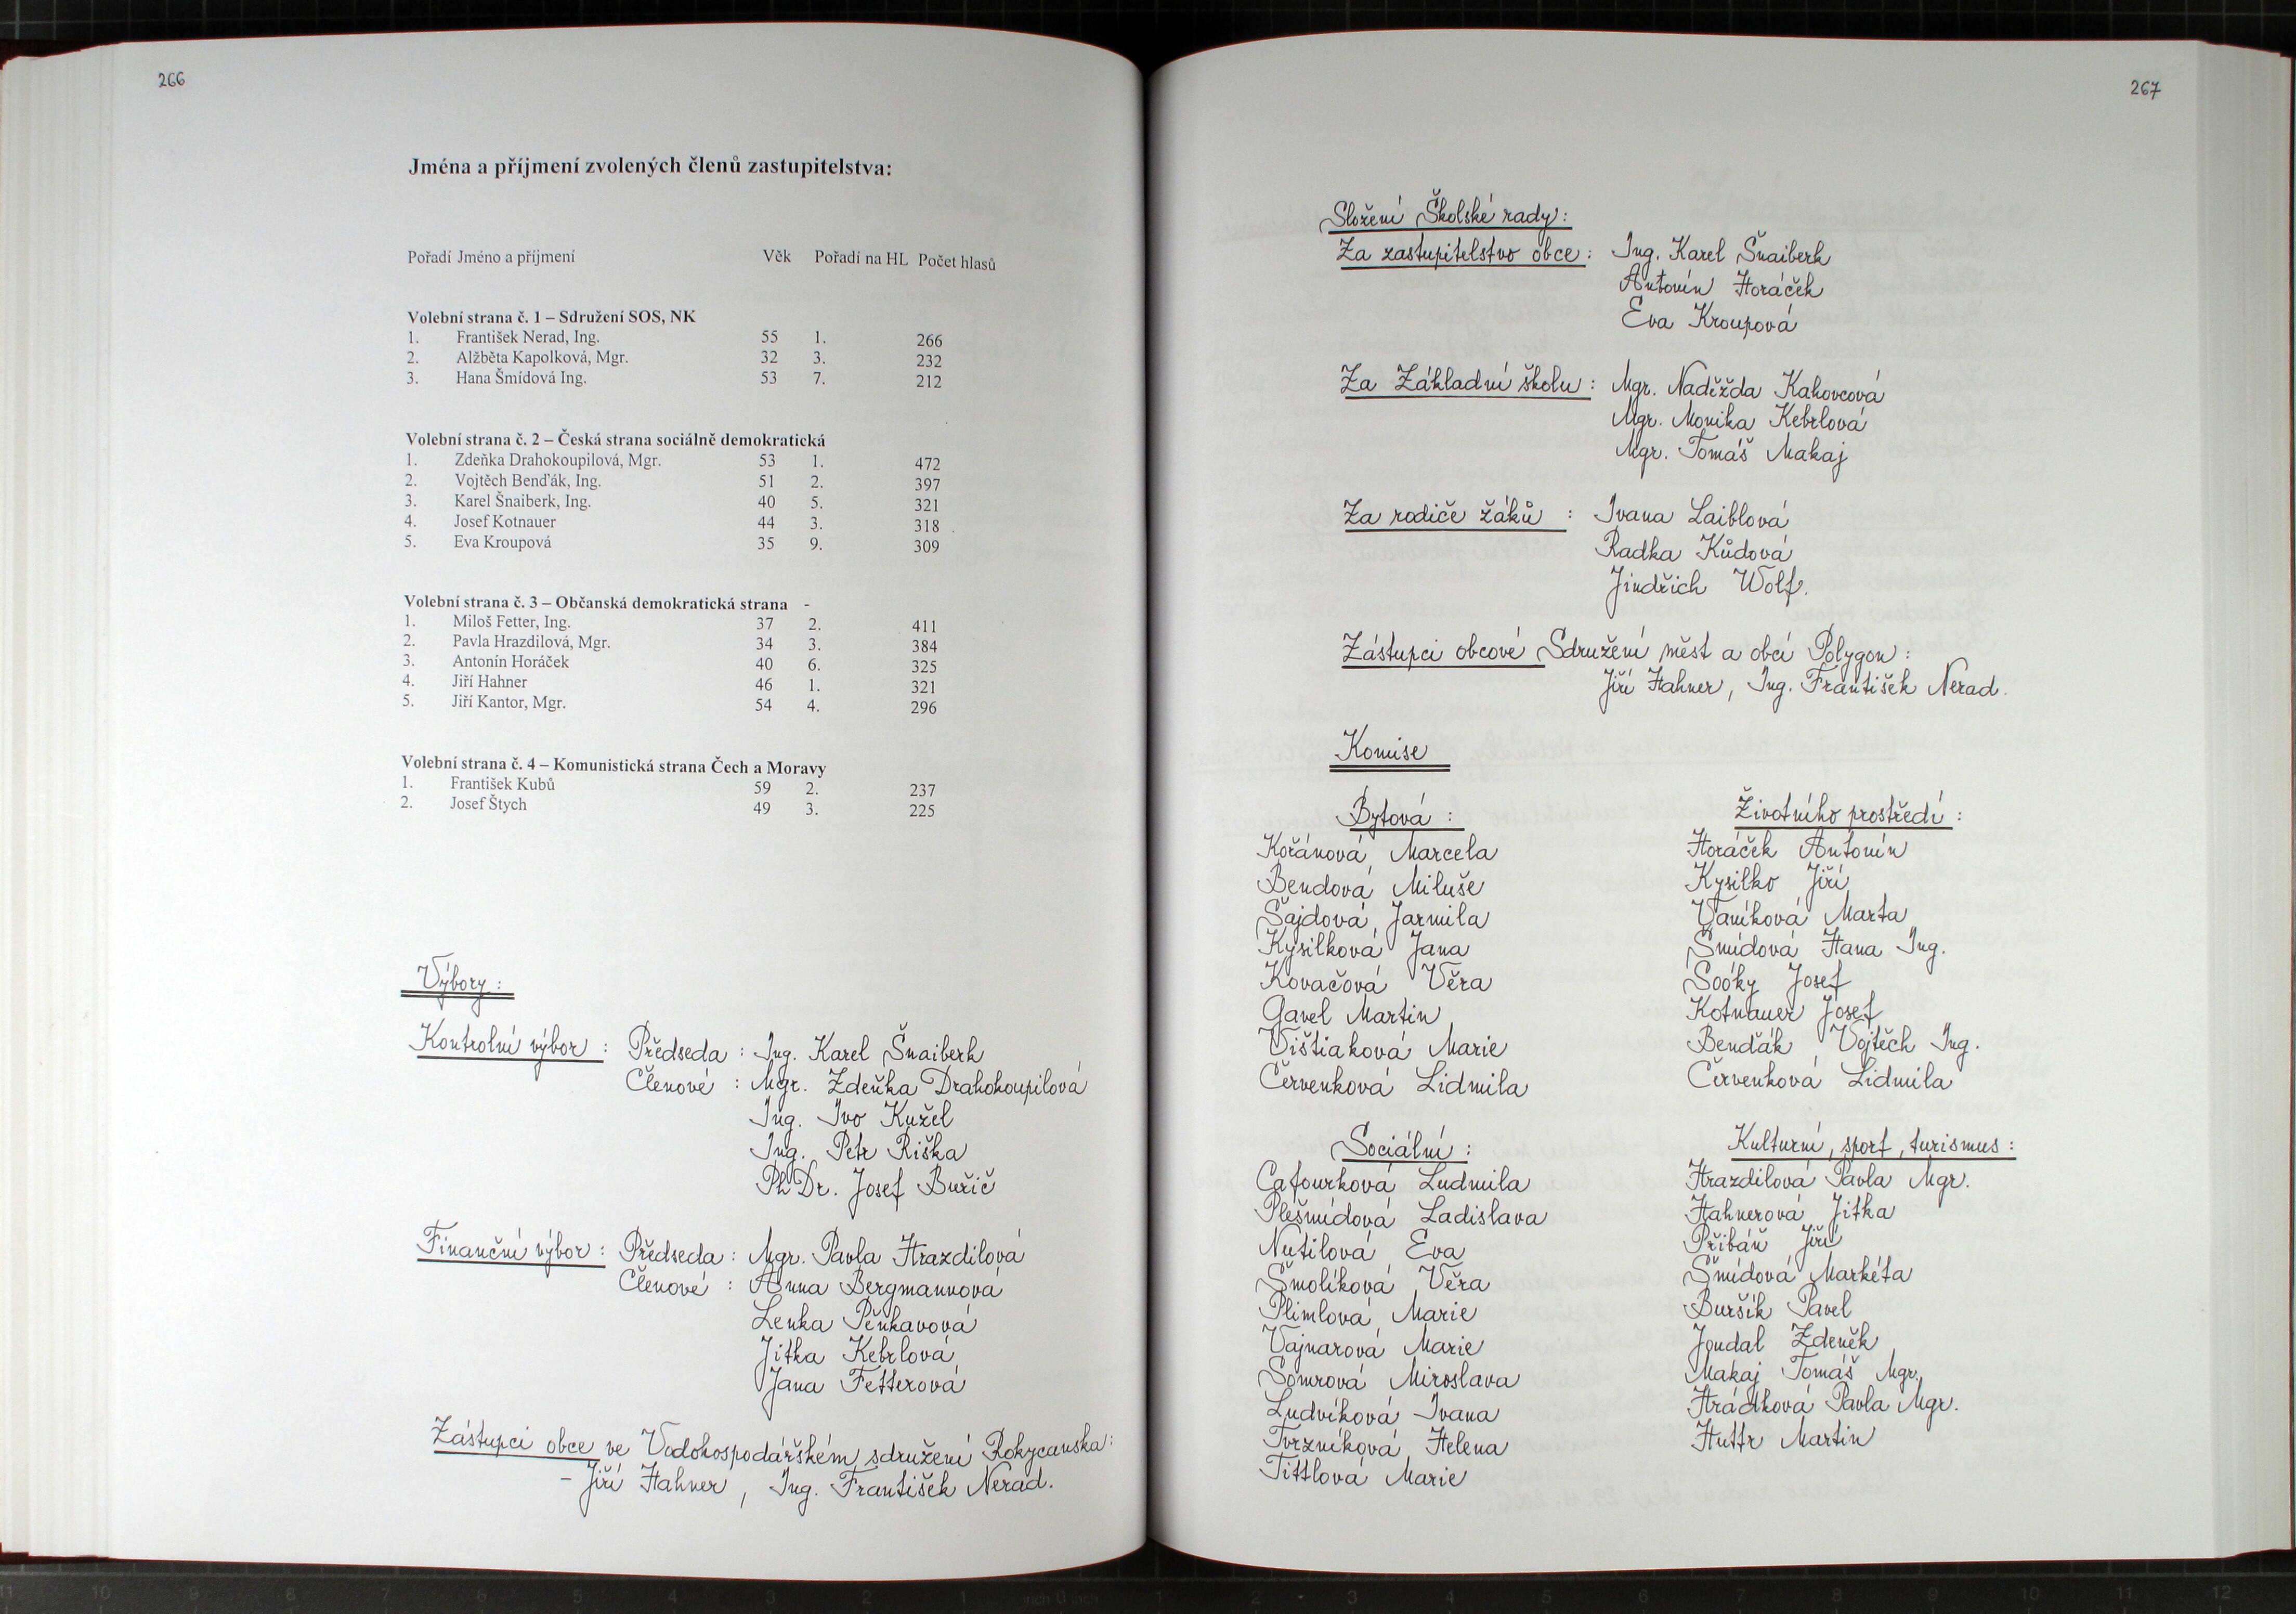 266
Jména a příjmení zvolených členů zastupitelstva:
Pořadí Jméno a příjmení Věk Pořadí na HL Počet hlasů
Volební strana č. 1 – Sdružení SOS, NK
1. František Nerad, Ing. 55 1. 266
2. Alžběta Kapolková, Mgr. 32 3. 232
3. Hana Šmídová Ing. 53 7. 212
Volební strana č. 2 – Česká strana sociálně demokratická
1. Zdeňka Drahokoupilová, Mgr. 53 1. 472
2. Vojtěch Benďák, Ing. 51 2. 397
3. Karel Šnaiberk, Ing. 40 5. 321
4. Josef Kotnauer 44 3. 318
5. Eva Kroupová 35 9. 309
Volební strana č. 3 – Občanská demokratická strana -
1. Miloš Fetter, Ing. 37 2. 411
2. Pavla Hrazdilová, Mgr. 34 3. 384
3. Antonín Horáček 40 6. 325
4. Jiří Hahner 46 1. 321
5. Jiří Kantor, Mgr. 54 4. 296
Volební strana č. 4 – Komunistická strana Čech a Moravy
1. František Kubů 59 2. 237
2. Josef Štych 49 3. 225
Výbory:
Kontrolní výbor: Předseda: Ing. Karel Šnaiberk
Členové: Mgr. Zdeňka Drahokoupilová
Ing. Ivo Kužel
Ing. Petr Riška
PhDr. Josef Buřič
Finanční výbor: Předseda: Mgr. Pavla Hrazdilová
Členové: Anna Bergmannová
Lenka Pěnkavová
Jitka Kebrlová
Jana Fetterová
Zástupci obce ve Vodohospodářském sdružení Rokycanska:
- Jiří Hahner, Ing. František Nerad.
267
Složení Školské rady:
Za zastupitelstvo obce: Ing. Karel Šnaiberk
Antonín Horáček
Eva Kroupová
Za Základní školu: Mgr. Naděžda Kahovcová
Mgr. Monika Kebrlová
Mgr. Tomáš Makaj
Za rodiče žáků: Ivana Laiblová
Radka Kůdová
Jindřich Wolf.
Zástupci obcové Sdružení měst a obcí Polygon:
Jiří Hahner, Ing. František Nerad.
Komise
Bytová:
Kořánová Marcela
Bendová Miluše
Šajdová Jarmila
Kysilková Jana
Kovačová Věra
Gavel Martin
Vištiaková Marie
Červenková Lidmila
Životního prostředí:
Horáček Antonín
Kysilko Jiří
Vaníková Marta
Šmídová Hana Ing.
Soóky Josef
Kotnauer Josef
Benďák Vojtěch Ing.
Červenková Lidmila
Sociální:
Cafourková Ludmila
Plešmídová Ladislava
Nutilová Eva
Smolíková Věra
Plimlová Marie
Vajnarová Marie
Somrová Miroslava
Ludvíková Ivana
Tvrzníková Helena
Tittlová Marie
Kulturní, sport, turismus:
Hrazdilová Pavla Mgr.
Hahnerová Jitka
Přibáň Jiří
Šmídová Markéta
Buršík Pavel
Joudal Zdeněk
Makaj Tomáš Mgr.
Hrádková Pavla Mgr.
Huttr Martin